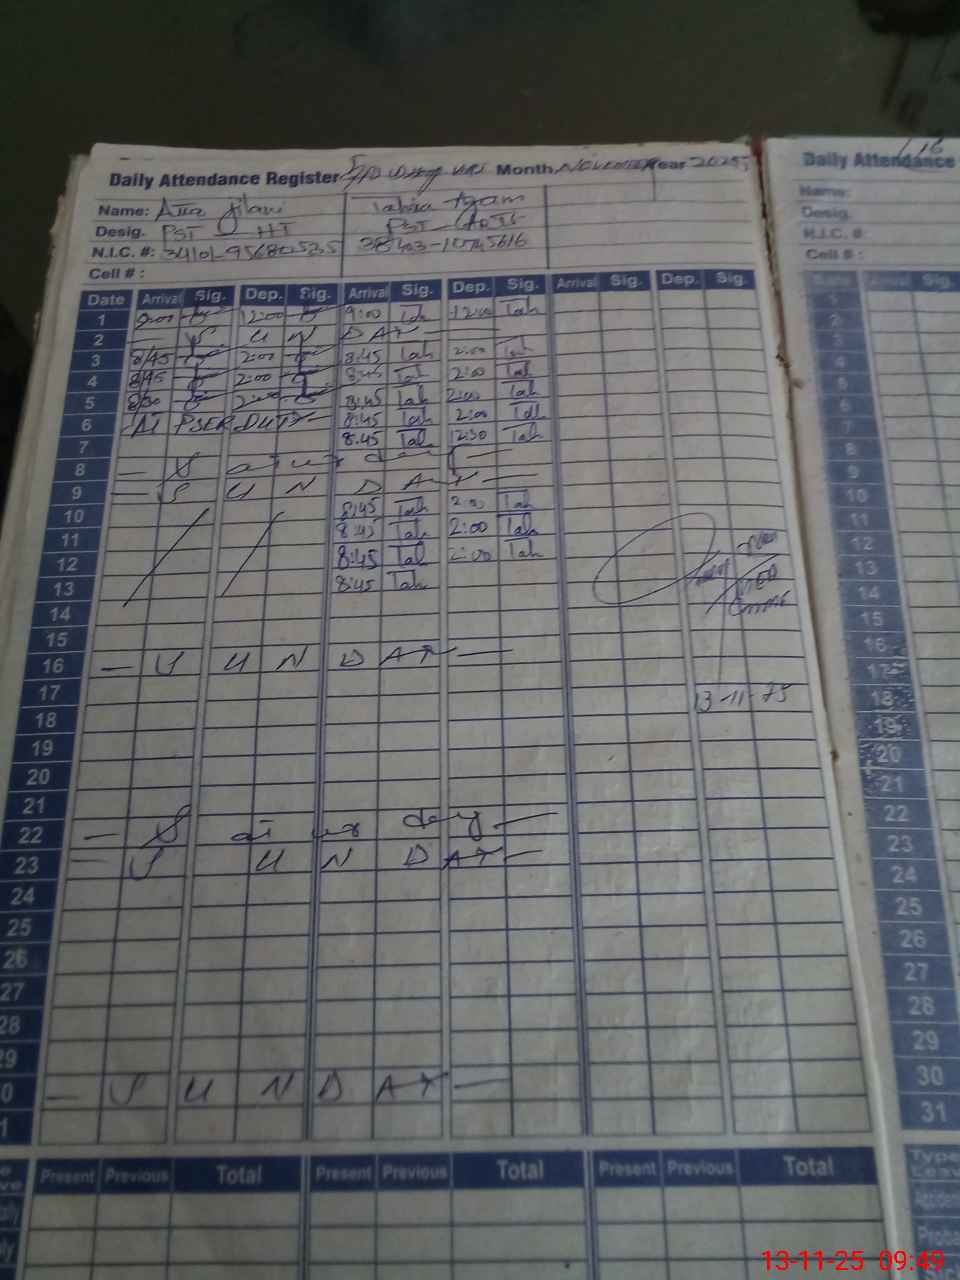 Daily Attendance Register Month November Year 2025
Daily Attendance
Name: Atta Jilani
Name:
Desig. PST HT PST
Desig.
N.I.C. #:
N.I.C. #:
Cell # :
Cell # :
Date Arrival Sig. Dep. Sig. Arrival Sig. Dep. Sig. Arrival Sig. Dep. Sig.
1 9:00 12:00 9:00 Tah 12:00 Tah
2 S U N DAY
3 8/45 2:00 8:45 Tah 2:00 Tah
4 8/45 2:00 8:45 Tah 2:00 Tah
5 8/30 2:00 8:45 Tah 2:00 Tah
6 At PSER DUTY 8:45 Tah 2:00 Tah
7 8:45 Tah 12:30 Tah
8 S at ur day
9 S U N D AY
10 8:45 Tah 2:00 Tah
11 8:45 Tah 2:00 Tah
12 8:45 Tah 2:00 Tah
13 8:45 Tah
14
15
16 S U N D AY
17 13-11-25
18
19
20
21
22 S at ur day
23 S U N D AY
24
25
26
27
28
29
30 S U N D AY
31
Present Previous Total Present Previous Total Present Previous Total
8
9
10
11
12
13
14
15
16
17
18
19
20
21
22
23
24
25
26
27
28
29
30
31
13-11-25 09:49